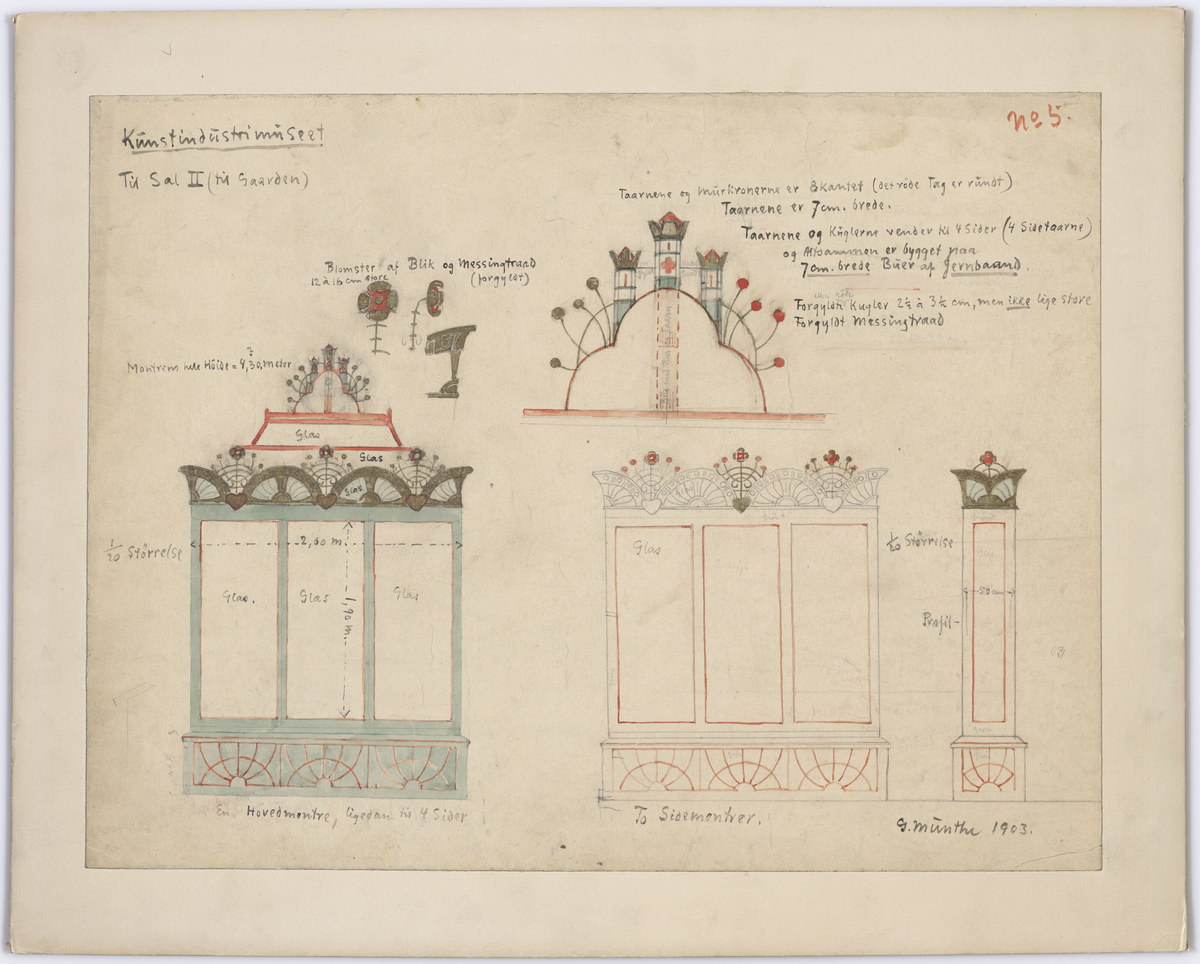 Kunstindustrimuseet
Til Sal II (til Gaarden)
No 5.
Taarnene og Murkronerne er 8kantet (det röde Tag er rundt)
Taarnene er 7 cm. brede.
Taarnene og Kuglerne vender til 4 Sider (4 Sidetaarne)
og Altsammen er bygget paa
7 cm. brede Buer af Jernbaand.
eller röde
Forgyldte Kugler 2½ à 3½ cm, men ikke lige store
Forgyldt Messingtraad
Blomster af Blik og Messingtraad
12 à 16 cm store
(forgyldt)
Montrens hele Höide = 4,30. meter
?
Glas
Glas
Glas
1/20 Störrelse
2,60 m.
1,90 m.
Glas.
Glas
Glas
En Hovedmontre, ligedan til 4 Sider
Glas
To Sidemontrer.
1/20 Störrelse
50 cm
Profil-
G. Munthe 1903.